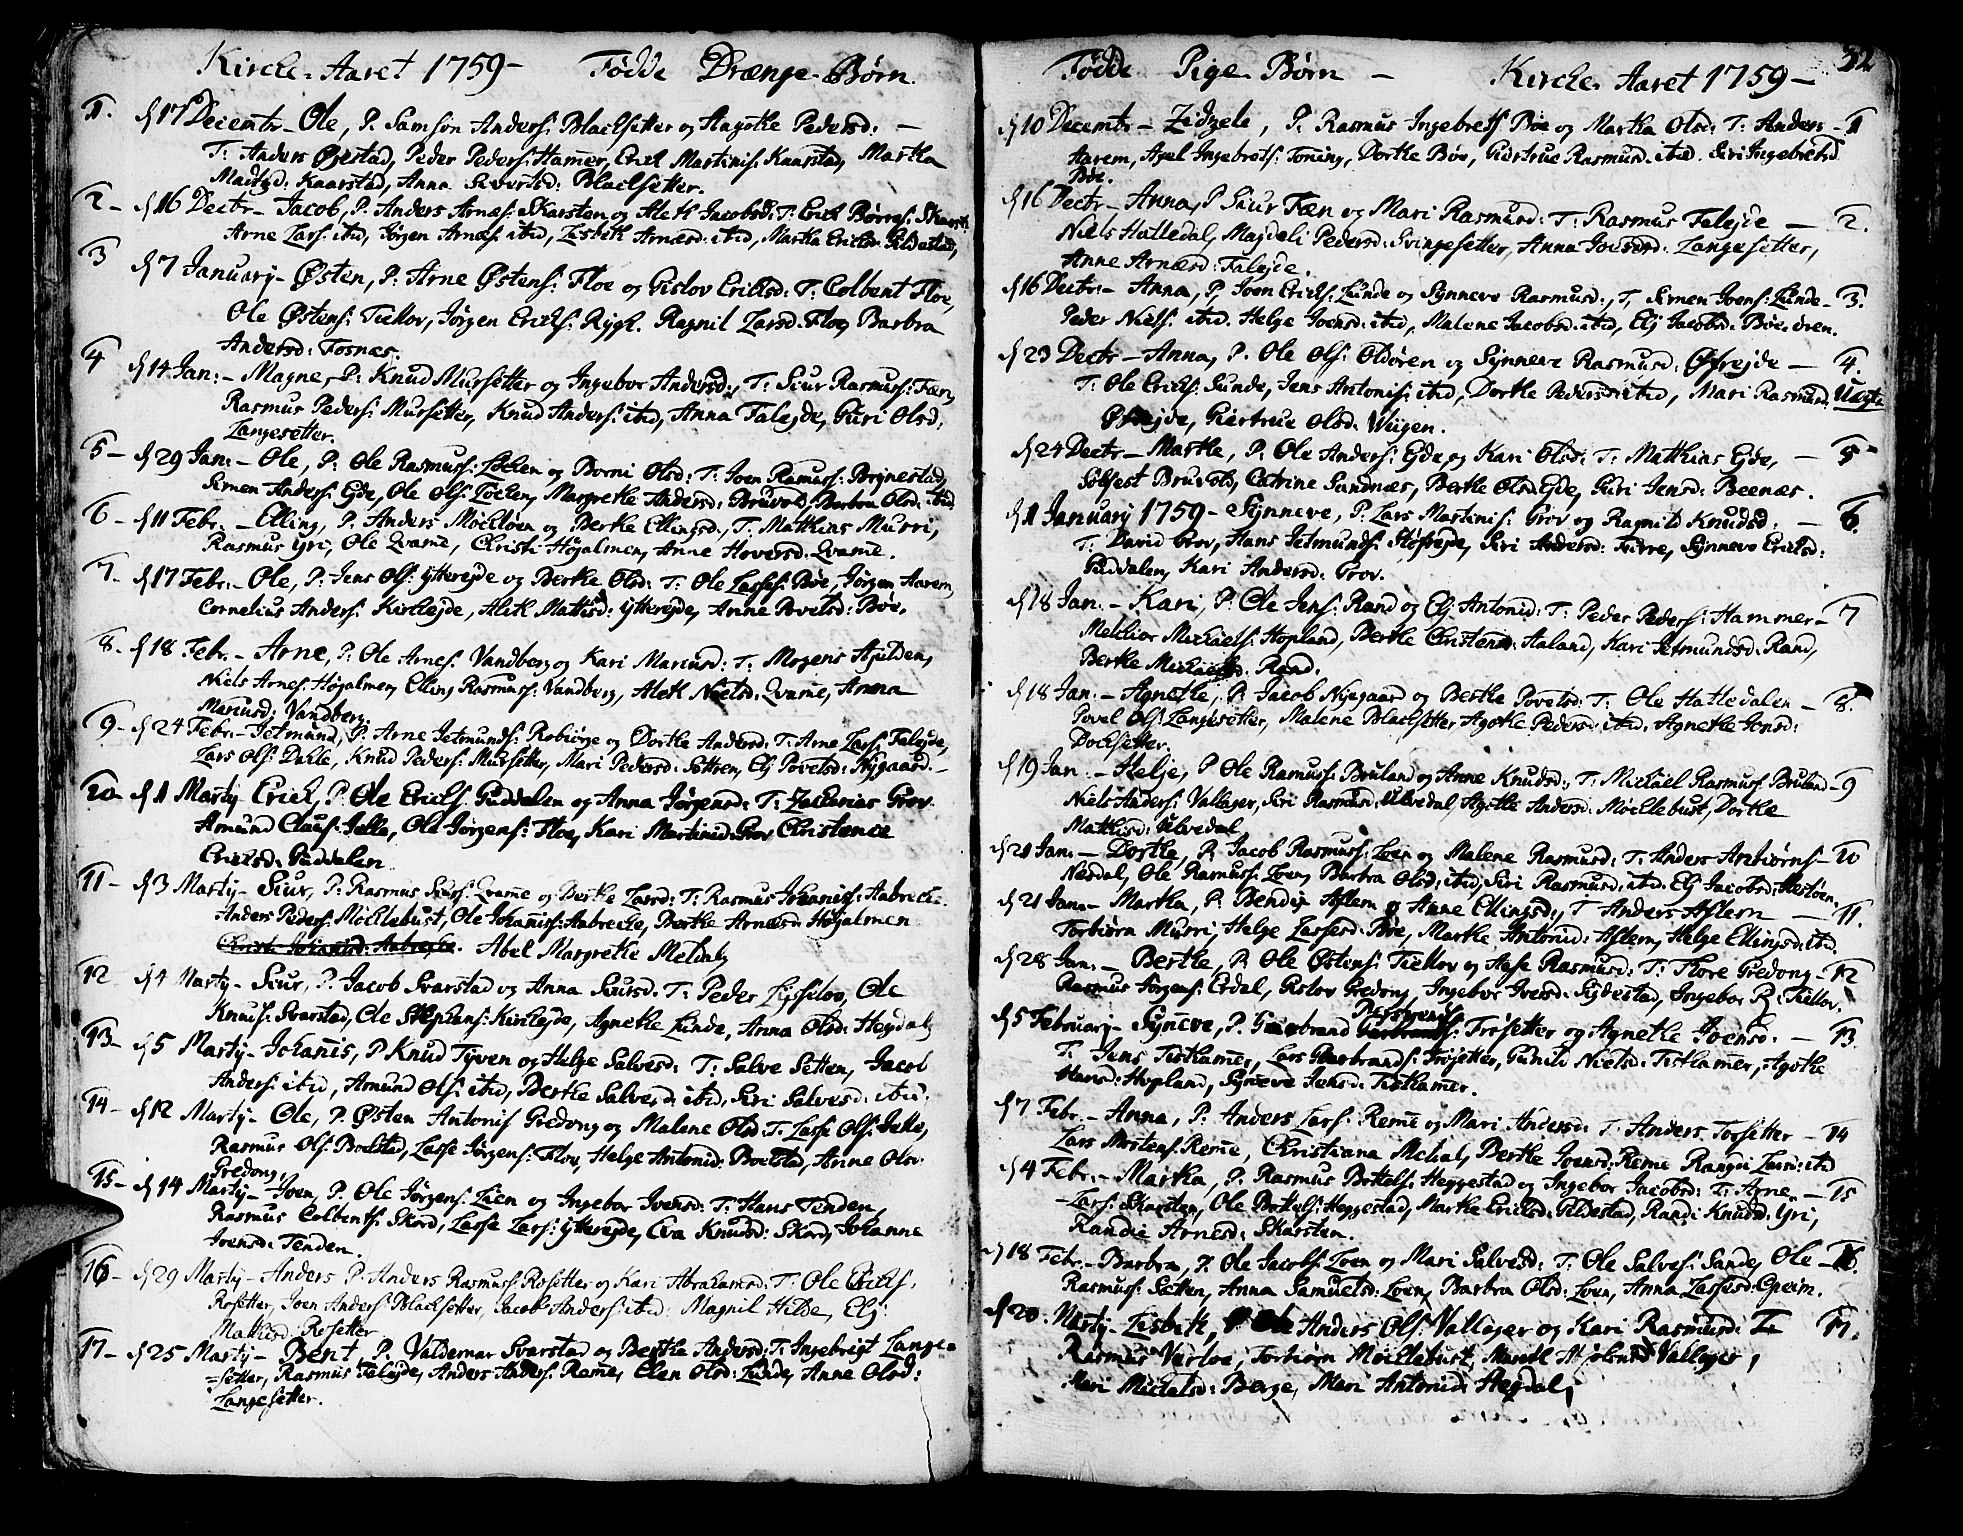 Kirche-Aaret 1759- Fødde Drænge-Børn.
1. d 17 Decembr- Ole, P. Samson Anders: Blachsetter og Angothe Pedersd: -
T: Anders Øvestad, Peder Peders: Hamer, Erich Martinis: Kaarstad, Martha
Madtzd: Kaarstad, Anna Siversd: Blachsetter.
2- d 16 Decbr- Jacob, P: Anders Arnes: Skarsten og Aleth Jacobsd: T: Erich Børres: Skarst:
Arne Lars: ibid, Jørgen Arnes: ibid, Lisbeth Arnæsd: ibid, Martha Erichs: Gildestad,
3 d 7 January- Østen, P: Arne Østens: Floe og Gislov Erichsd: T: Colbent Floe,
Ole Østens: Tiellov, Jørgen Erichs: Rygh. Ragnil Larsd: Floe, Barbra
Andersd: Fosnæs.
4 d 14 Jan:- Magne, P: Knud Mursetter og Ingebor Andersd:, T: Siur Rasmus: Fæn,
Rasmus Peders: Mursetter, Knud Anders: ibid, Anna Falejde, Guri Olsd:
Langesetter.
5- d 29 Jan:- Ole, P: Ole Rasmus: Løchen og Dorni Olsd: T: Joen Ramus: Brynestad,
Simen Anders: Gde, Ole Ols: Løchen, Margrethe Andersd: Bruvol, Barbra Olsd: ibid
6- d 11 Febr.- Elling, P. Anders Mochløen og Berthe Ellingsd, T: Matthias Murri,
Rasmus Yri, Ole Qvame, Christi Høgalmen, Anne Hoversd: Qvame.
7- d 17 Febr.- Ole, P: Jens Ols: ytterejde og Berthe Olsd: T: Ole Lasses: Bøe, Jørgen Aarem,
Cornelius Anders: Kirchejde, Aleth Mathisd: ytterejde, Anne Povelsd: Bøe.
8- d 18 Febr.- Arne, P: Ole Arnes: Vandberg og Kari Mariusd: T: Mogens Hjelden,
Niels Arnes: Høgalmen, Elling Rasmus: Vandberg, Aleth Nielsd: Qvame, Anna
Mariusd: Vandberg.
9- d 24 Febr.- Jetmund, P: Arne Jetmunds: Robiørge og Dorthe Andersd: T: Arne Lars: Falejde,
Lars Ols: Dahle, Knud Peders: Mursetter, Mari Pedersd: Settren, Elj Povelsd: Nygaard.-
10- d 1 Marty- Erich, P: Ole Erichs: Guddalen og Anna Jørgensd: T: Zacharias Grov
Amund Claus: Jelle, Ole Jørgens: Floe, Kari Martinisd: Grov Christence
Erichsd: Guddalen
11- d 3 Marty- Siur, P: Rasmus Siurs: Qvame og Berthe Larsd: T: Rasmus Johanis: Aabreche.
Anders Peders: Mochlebust, Ole Johanis: Aabreche, Berthe Arnæsd: Høgalmen
Christi Johanisd: Aabreche. Abel Margrethe Meldal,
12 d 4 Marty- Siur, P: Jacob Svarstad og Anna Siursd: T: Peder Lyssilov, Ole
Knuds: Svarstad, Ole Stephens: Kirchejde, Agnethe Lunde, Anna Olsd: Hegdal,
13- d 5 Marty- Johanis, P Knud Tyven og Helge Salvesd: T: Salve Setten, Jacob
Anders: ibid, Amund Ols: ibid, Berthe Salvesd: ibid, Siri Salvesd: ibid.
14- d 12 Marty- Ole, P. Østen Antonis Gredong og Malene Olsd: T. Lasse Ols: Jelle,
Rasmus Ols: Boelstad, Lasse Jørgens: Floe, Helge Antonid: Boelstad, Anne Olsd:
Gredong,
15- d 14 Marty- Joen, P. Ole Jørgens: Lien og Ingebor Joensd: T: Hans Tenden,
Rasmus Colbents: Skore, Lasse Lars: ytterejde, Eva Knudsd: Skore, Johanne
Joensd: Tenden.
16- d 29 Marty- Anders P: Anders Rasmus: Rosetter og Kari Abrahamsd: T: Ole Erichs.
Rosetter, Joen Anders: Blachsetter, Jacob Anders: ibid: Magnil Hilde, Elj:
Mathisd: Rosetter
17- d 25 Marty- Bent, P. Valdemar Svarstad og Berthe Andersd: T: Ingebrigt Lange=
=setter, Rasmus Falejde, Anders Anders: Reme, Elen Olsd: Lunde, Anne Olsd:
Langesetter.
32
Fødde Pige-Børn - Kirche-Aaret 1759-
d 10 Decembr- Zidzele, P. Rasmus Ingebrets: Bøe og Martha Olsd: T: Anders - 1
Aarem, Axel Ingebrets: Toning, Dorthe Bøe, Giertrue Rasmusd: ibid. Siri Ingebretsd:
Bøe.
d 16 Decbr- Anna, P Siur Fæn og Mari Rasmusd: T: Rasmus Falejde - 2.
Niels Hattledal, Magdeli Pedersd: Svingesetter, Anna Joensd: Langesetter,
Anne Arnæsd: Falejde.
d 16 Decbr:- Anna, P. Joen Erichs: Lunde og Synneve Rasmusd:, T. Simen Joens: Lunde- 3.
Peder Niels: ibid. Helge Joensd: ibid, Malene Jacobsd: ibid, Elj Jacobsd: Bøe-øren.
d 23 Decbr- Anna, P. Ole Ols: Oldøren og Synneve Rasmusd: Øfrejde - 4.
T: Ole Erichs: Sunde, Jens Antonis: ibid, Dorthe Pedersd: ibid, Mari Rasmusd: Uægte
Øfrejde, Giertrue Olsd: Wiigen.
d 24 Decbr- Marthe, P: Ole Anders: Gde, og Kari Olsd: T: Mathias Gde, - 5
Sølfest Bruvold, Catrine Sandnæs, Berthe Olsd: Gde, Guri Jensd: Beenæs.
d 1 January 1759- Synneve, P. Lars Martinis: Grov og Ragnild Knudsd: - 6.
T: David Grov, Hans Jetmunds: Støfrejde, Siri Andersd: Furre, Synneve Erichsd:
Guddalen, Kari Andersd: Grov.
d 18 Jan:- Kari, P: Ole Jens: Rand og Elj Antonid: T: Peder Peders: Hammer- 7
Melchior Michaels: Hopland, Berthe Christensd: Aaland, Kari Jetmundsd: Rand,
Berthe Michaelsd: Rand.
d 18 Jan.- Agnethe, P. Jacob Nygaard og Berthe Povelsd: T: Ole Hattledalen - 8.
Povel Ols: Langesetter, Malene Blachsetter Agothe Pedersd: ibid: Agnethe Jonsd:
Dochsetter.
d 19 Jan:- Helje, P. Ole Rasmus: Bruland og Anne Knudsd: T: Michael Rasmus: Bruland- 9
Niels Anders: Vallager, Siri Rasmusd: Ulvedal, Agothe Andersd: Mochlebust, Dorthe
Mathisd: Ulvedal,
d 21 Jan.- Dorthe, P. Jacob Rasmus: Loen og Malene Rasmusd: T: Anders Anbiørns- 10
Nesdal, Ole Rasmus: Loen, Barbra Olsd: ibid, Siri Rasmusd: ibid. Elj Jacobsd: Hestøen.
d 21 Jan.- Martha, P. Bendix Aflem og Anne Ellingsd:, T Anders Aflem - 11.
Torbiørn Murri, Helge Lassesd: Bøe, Marthe Antonid: Aflem, Helge Ellingsd: ibid
d 28 Jan.- Berthe, P. Ole Østens: Tiellov og Aase Rasmusd: T: Flore Gredong- 12
Rasmus Jørgens: Erdal, Gislov Gredong, Ingebor Iversd: Sydestad, Ingebor R: Tiellov.
d 5 February- Syneve, P. Guerbrand Guerbrands: Frøsetter og Agnethe Joensd: - 13.
T. Jens Tisthamer, Lars Guerbrands: Frøsetter, Gunild Nielsd: Tisthamer, Agothe
Hansd: Hopland, Syneve Jensd: Tisthamer.
d 7 Febr.- Anna, P: Anders Lars: Reme og Mari Andersd: T: Anders Torsetter- 14
Lars Mortens: Reme, Christiana Mehal, Berthe Joensd: Reme Rangdi Larsd: ibid
d 4 Febr.- Martha, P. Rasmus Bottels: Heggestad og Ingebor Jacobsd: T: Arne- 15
-Lars: Skarsten, Ole Bottels: Heggestad, Marthe Erichsd: Gildestad, Randi Knudsd: Yri,
Randie Arnesd: Skarsten.
d 18 Febr.- Barbra, P. Ole Jacobs: Loen og Mari Salvesd: T. Ole Salves: Sande, Ole- 16.
Rasmus: Setten, Anna Samuelsd: Loen, Barbra Olsd: Loen, Anna Lassesd: Greim.
d 20. Marty- Lisbeth, P Anders Ols: Vallager og Kari Rasmusd: T- 17.
Rasmus Verloe, Torbiørn Mochlebust, Vallager,
Mari Michelsd: Berge, Mari Antonid: Hegdal,